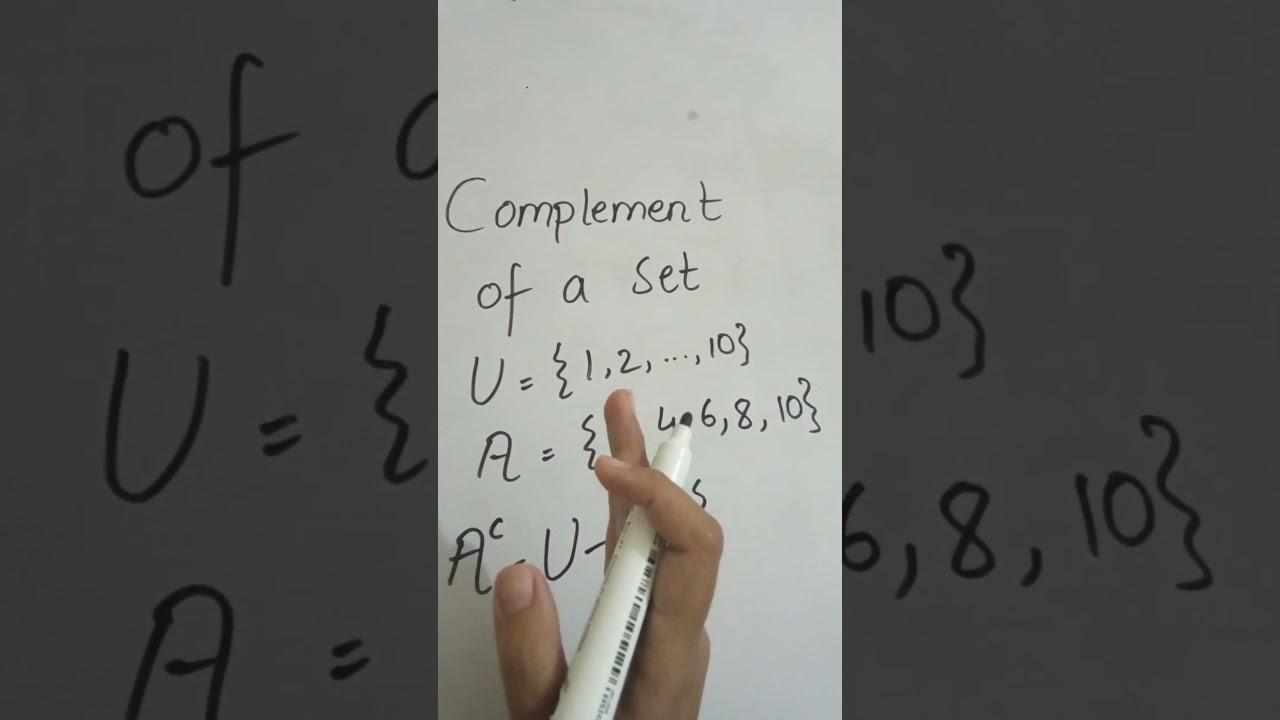 Complement
of a set
U = {1, 2, ..., 10}
A = { 4, 6, 8, 10}
Aᶜ = U -